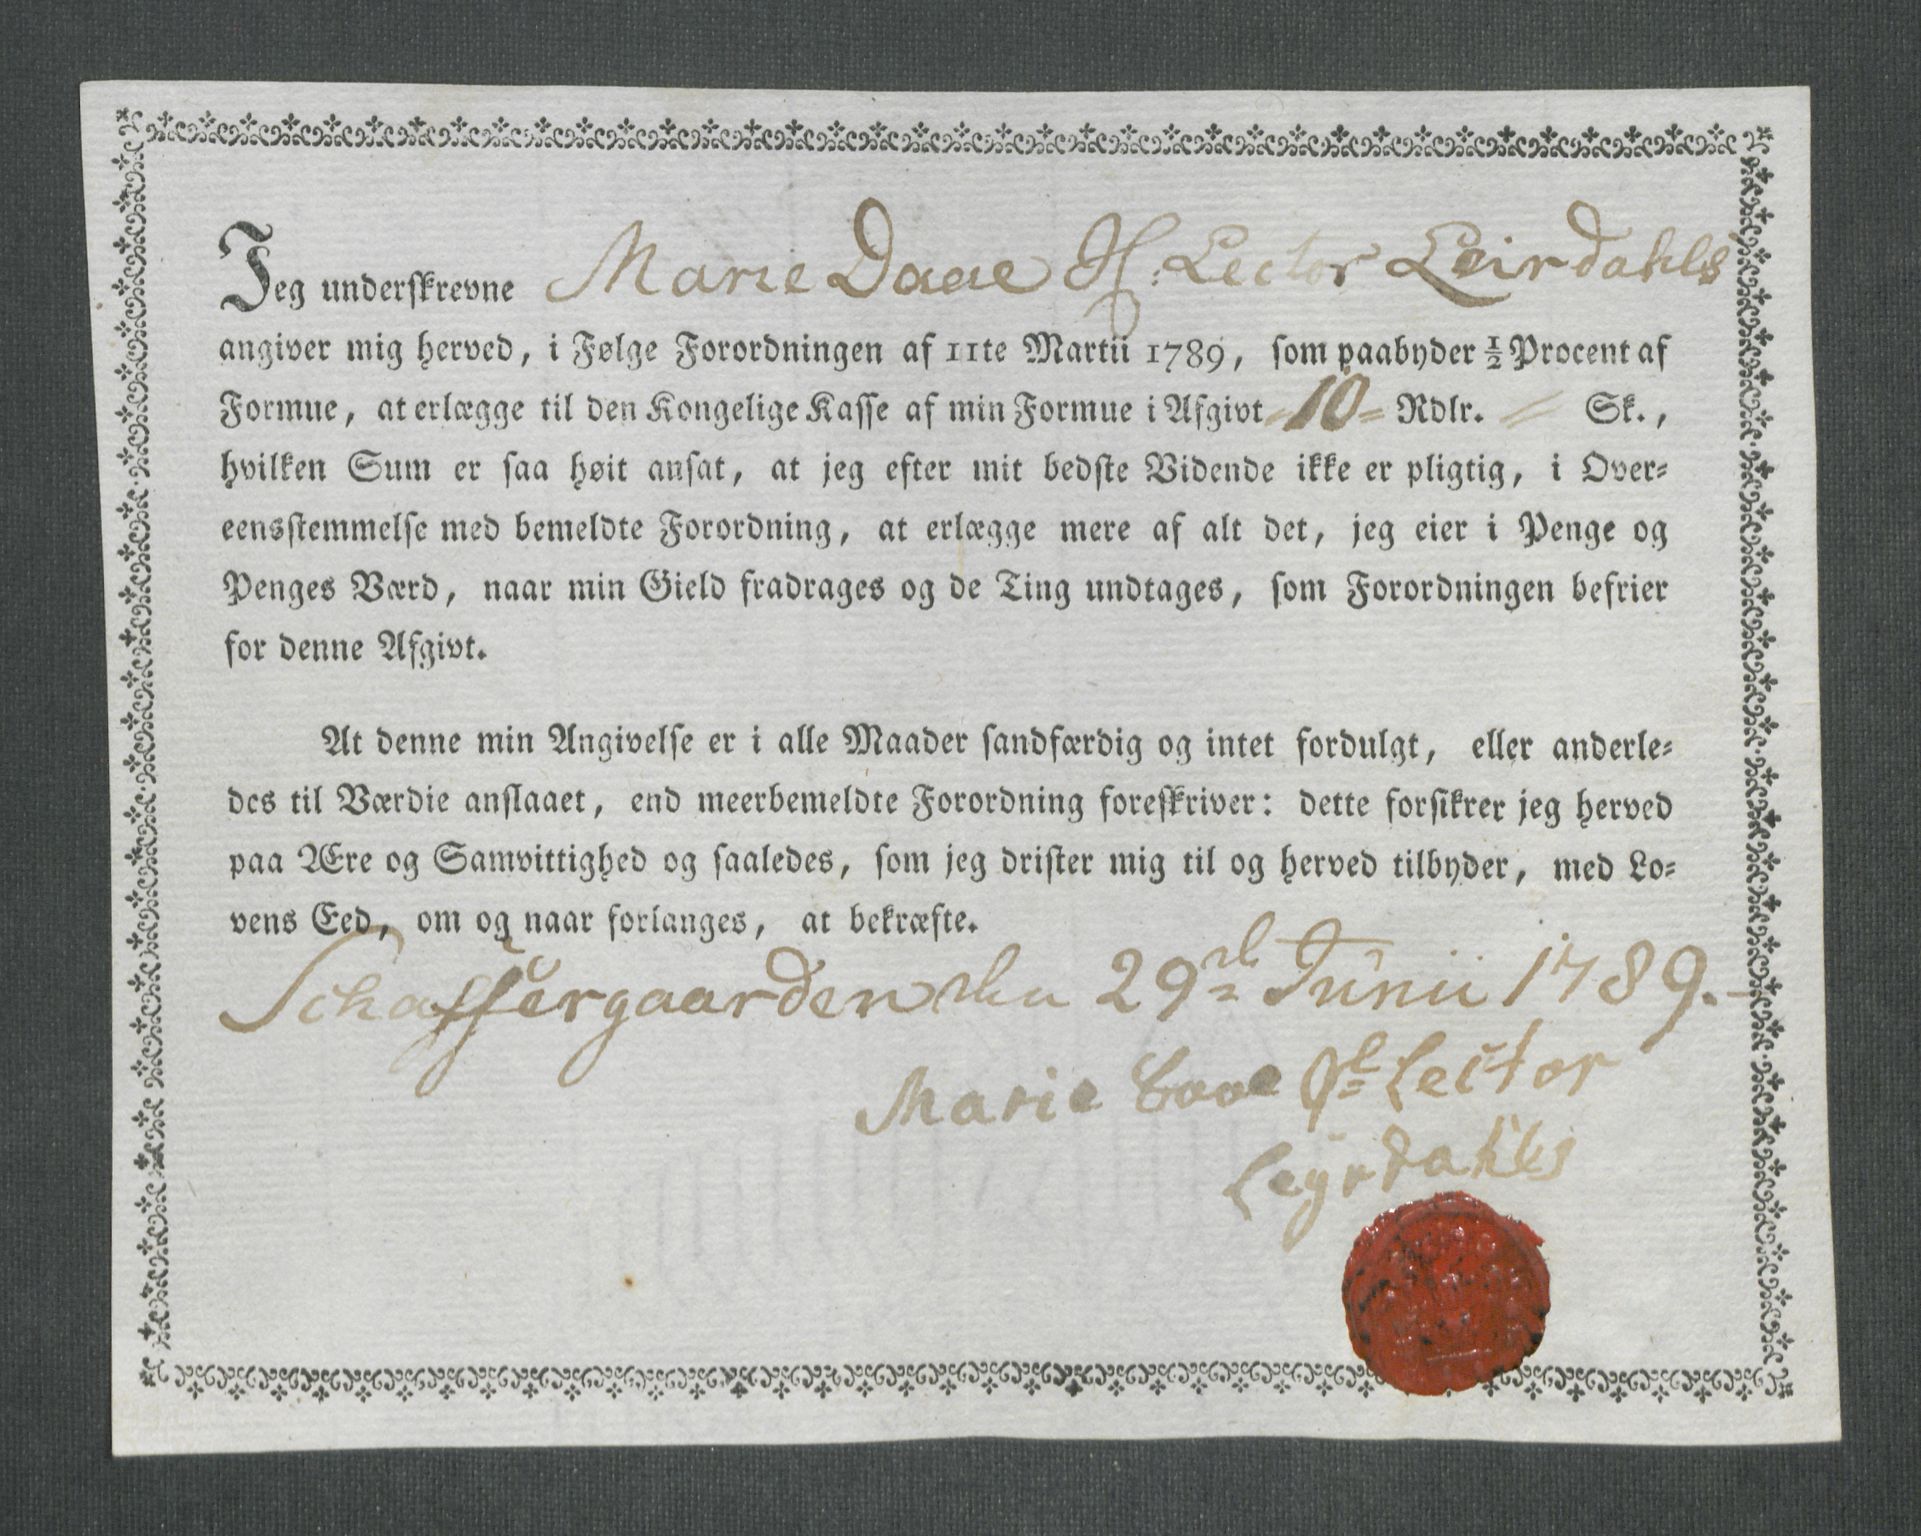 Jeg underskrevne Marie Daae Sl: Lector Leirdahls
angiver mig herved, i Følge Forordningen af 11te Martii 1789, som paabyder ½ Procent af
Formue, at erlægge til den Kongelige Kasse af min Formue i Afgivt = 10 = Rdlr. = Sk.,
hvilken Sum er saa høit ansat, at jeg efter mit bedste Vidende ikke er pligtig, i Over-
eensstemmelse med bemeldte Forordning, at erlægge mere af alt det, jeg eier i Penge og
Penges Værd, naar min Gield fradrages og de Ting undtages, som Forordningen befrier
for denne Afgivt.
At denne min Angivelse er i alle Maader sandfærdig og intet fordulgt, eller anderle-
des til Værdie anslaaet, end meerbemeldte Forordning foreskriver: dette forsikrer jeg herved
paa Ære og Samvittighed og saaledes, som jeg drister mig til og herved tilbyder, med Lo-
vens Eed, om og naar forlanges, at bekræfte.
Schaffergaarden den 29de Junii 1789.-
Marie Daae Sl Lector
Leyrdahls